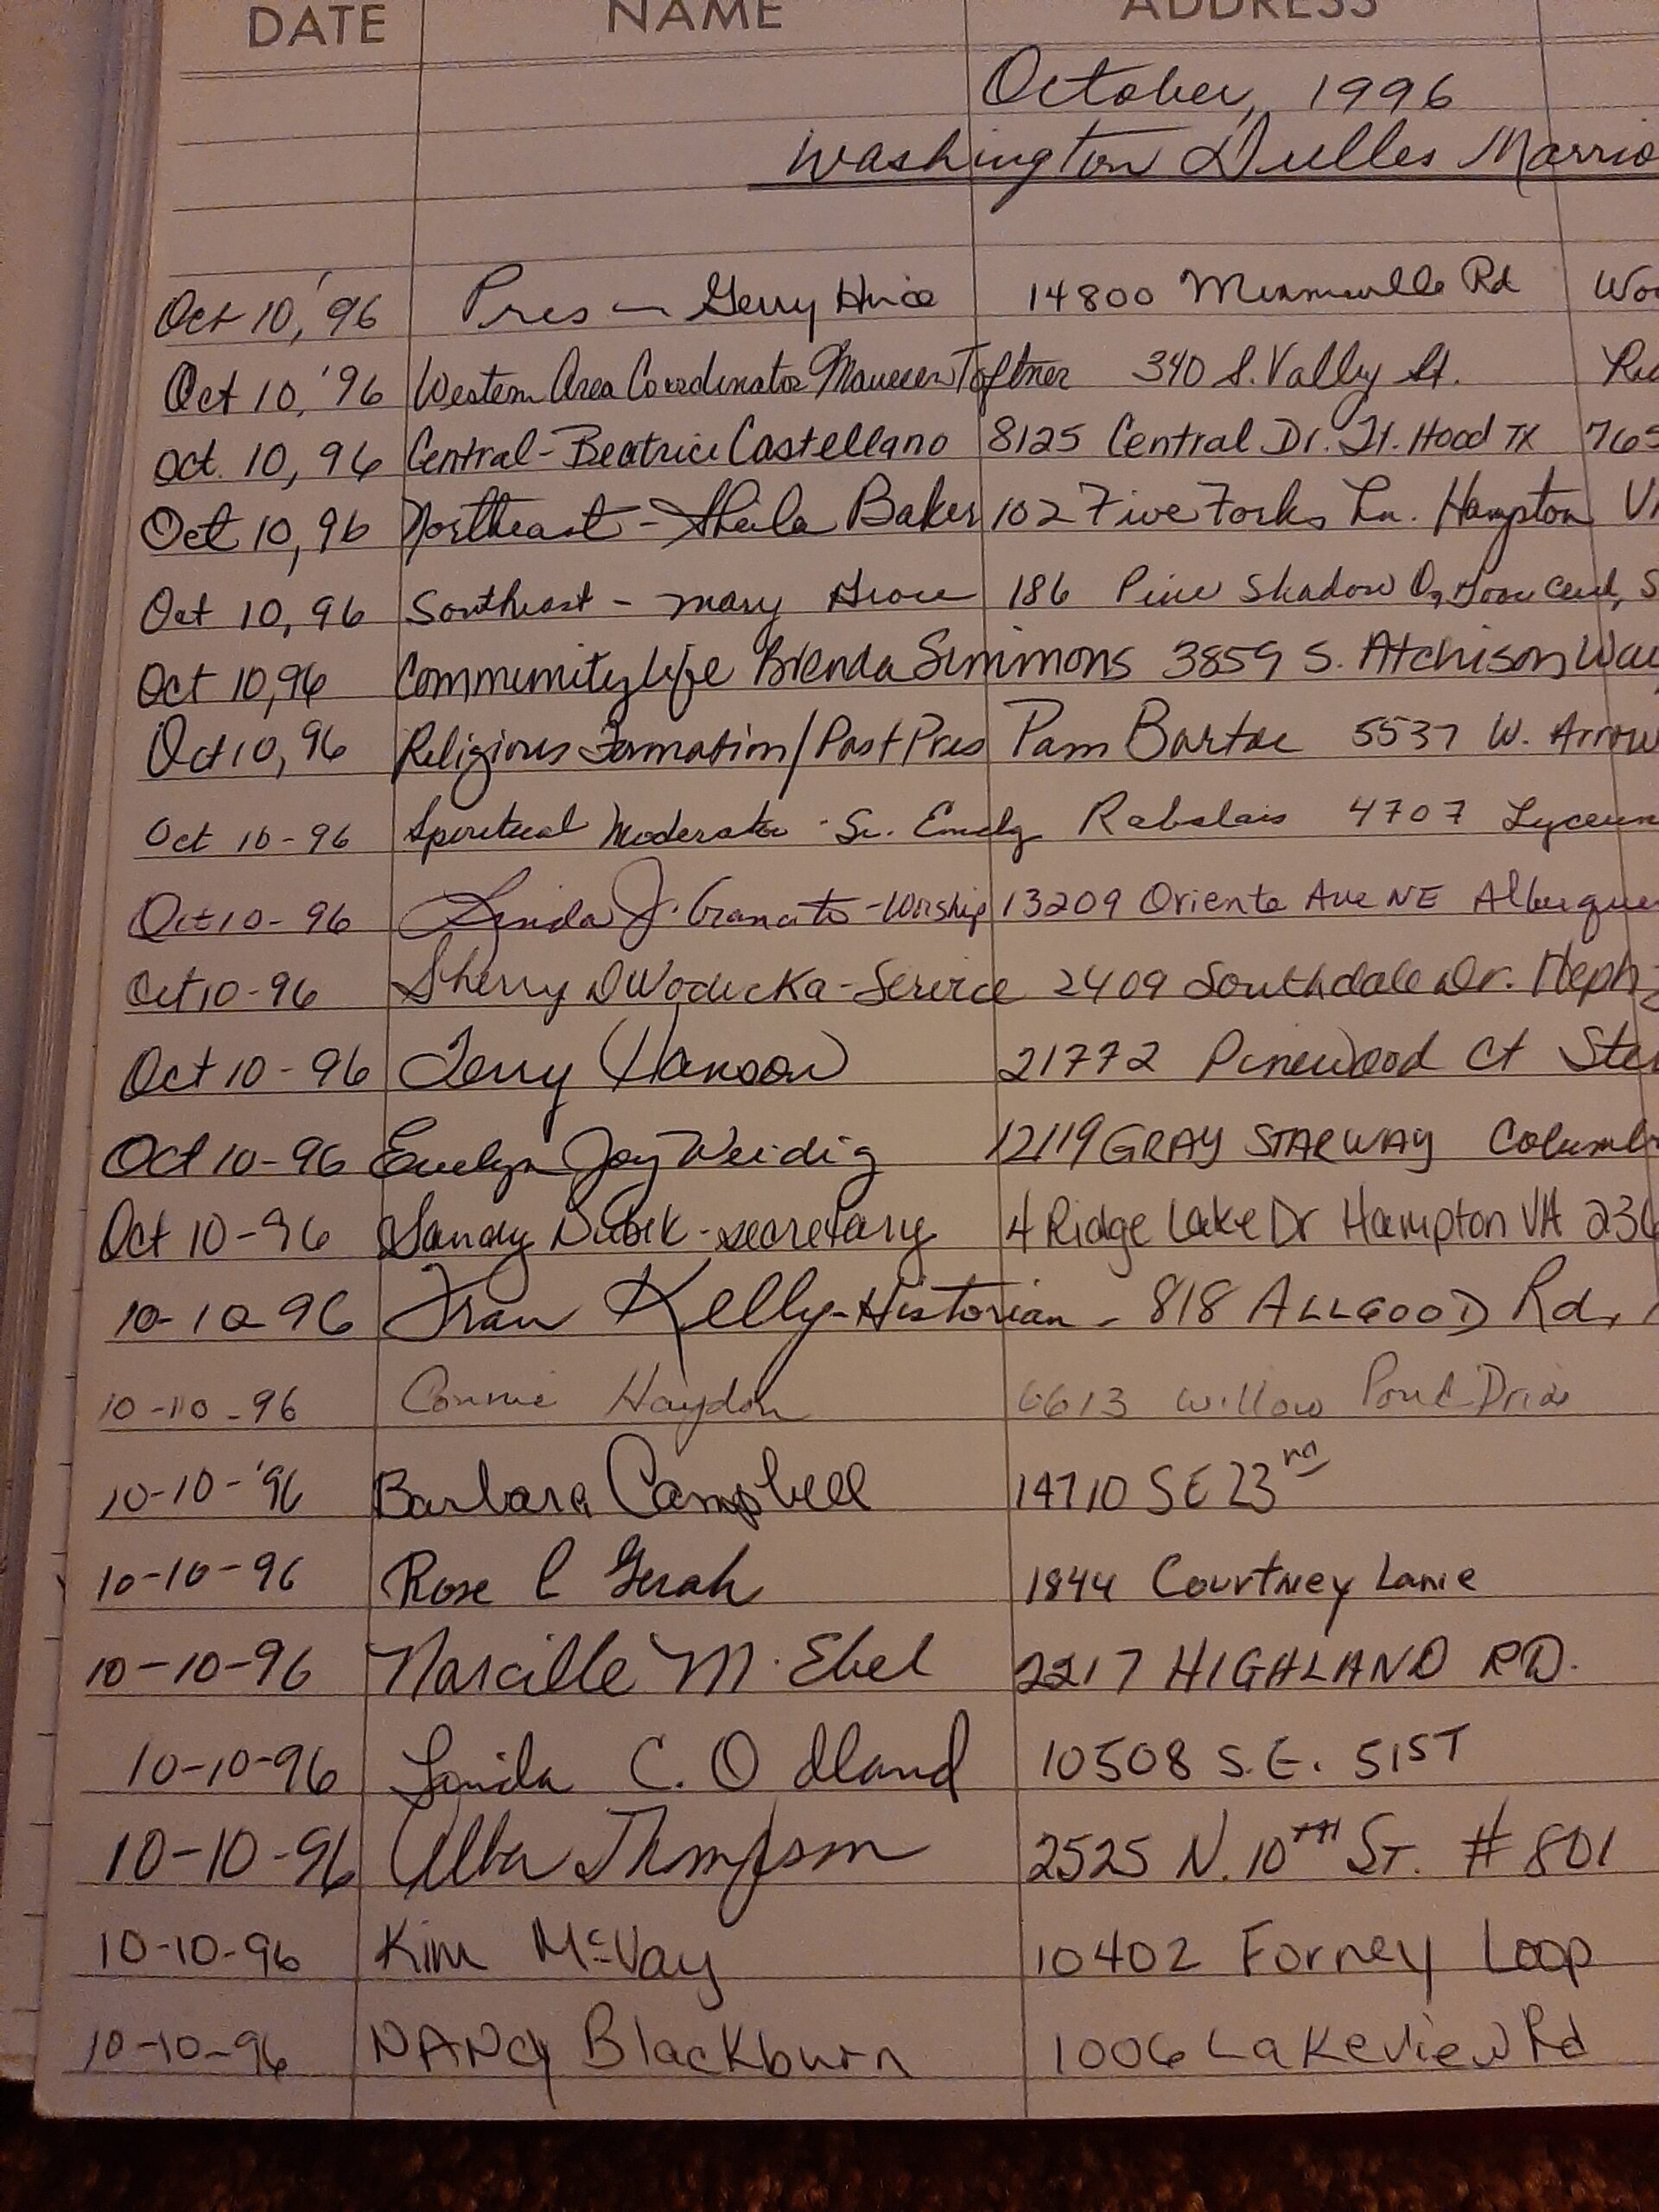 DATE NAME ADDRESS
October, 1996
Washington Dulles Marrio
Oct 10, '96 Pres - Gerry 14800 Rd Woo
Oct 10, '96 Western Area Coordinator Maureen Toftner 340 S. Valley St.
Oct. 10, 96 Central - Beatrice Castellano 8125 Central Dr. Ft. Hood TX 765
Oct 10, 96 Northeast - Sheila Baker 102 Five Forks Ln. Hampton VA
Oct 10, 96 Southeast - Mary 186 Pine Shadow
Oct 10, 96 Community Life Brenda Simmons 3859 S. Atchison Way
Oct 10, 96 Religious Formation/Past Pres Pam 5537 W. Arrow
Oct 10-96 Spiritual Moderator Sr. Emily Rabalais 4707 Lyceum
Oct 10-96 Linda J. Granato - Worship 13209 Oriente Ave NE Alburquer
Oct 10-96 Sherry D Wodicka - Service 2409 Southdale Dr. Heph
Oct 10-96 Terry Hanson 21772 Pinewood Ct Ster
Oct 10-96 Evelyn Joy Weidig 12119 GRAY STAR WAY Columb
Oct 10-96 Sandy Dubik - secretary 4 Ridge Lake Dr Hampton VA 236
10-10-96 Fran Kelly - Historian - 818 ALLGOOD Rd,
10-10-96 Connie Haydon 6613 Willow Pond Drive
10-10-'96 Barbara Campbell 14710 SE 23rd
10-10-96 Rose C Gerah 1844 Courtney Lane
10-10-96 Narcille M. Ebel 2217 HIGHLAND RD.
10-10-96 Linda C. Odland 10508 S.E. 51ST
10-10-96 Alba Thompson 2525 N. 10TH ST. # 801
10-10-96 Kim McVay 10402 Forney Loop
10-10-96 NANCy Blackburn 1006 Lakeview Rd